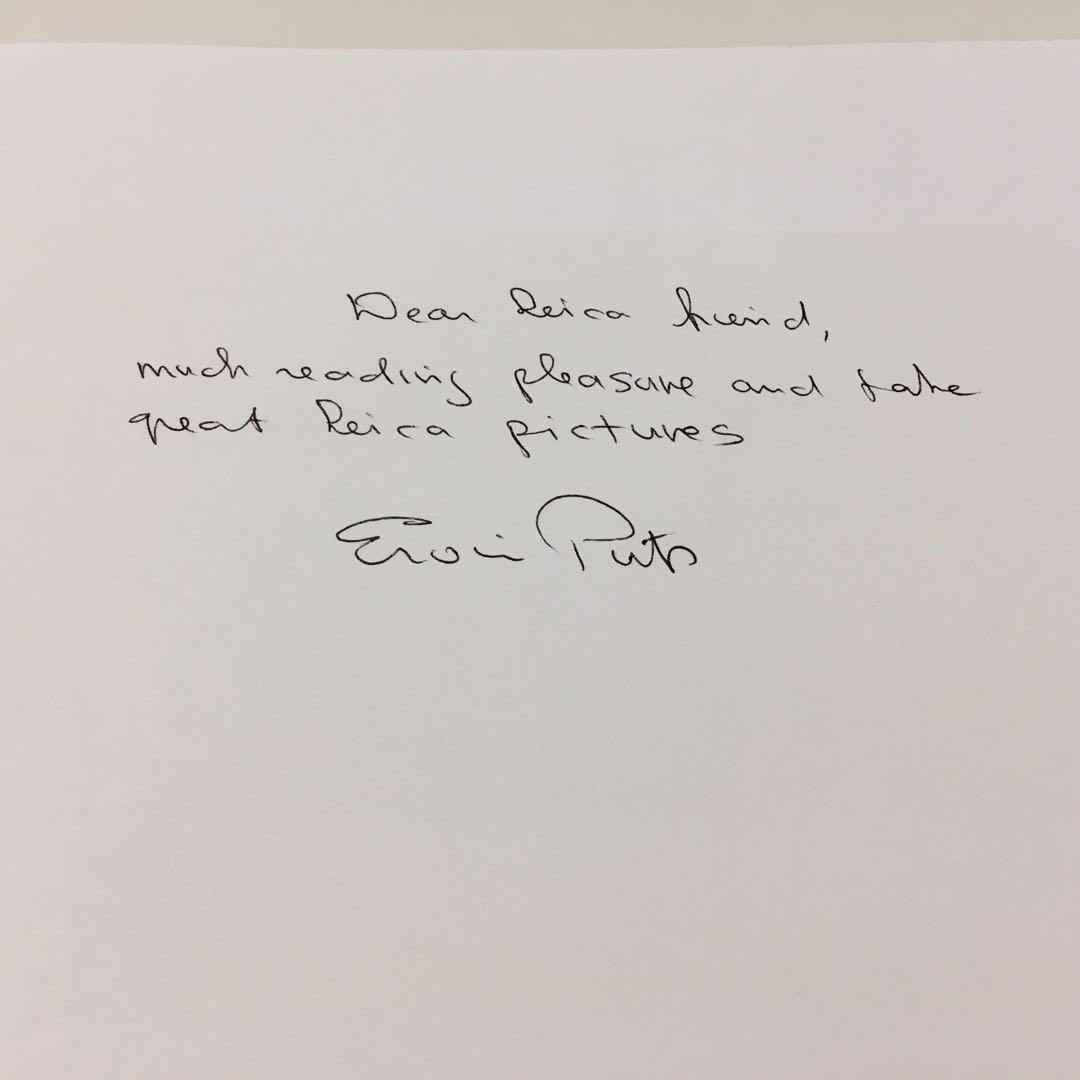 Dear Leica friend,
much reading pleasure and take
great Leica pictures
Erwin Puts